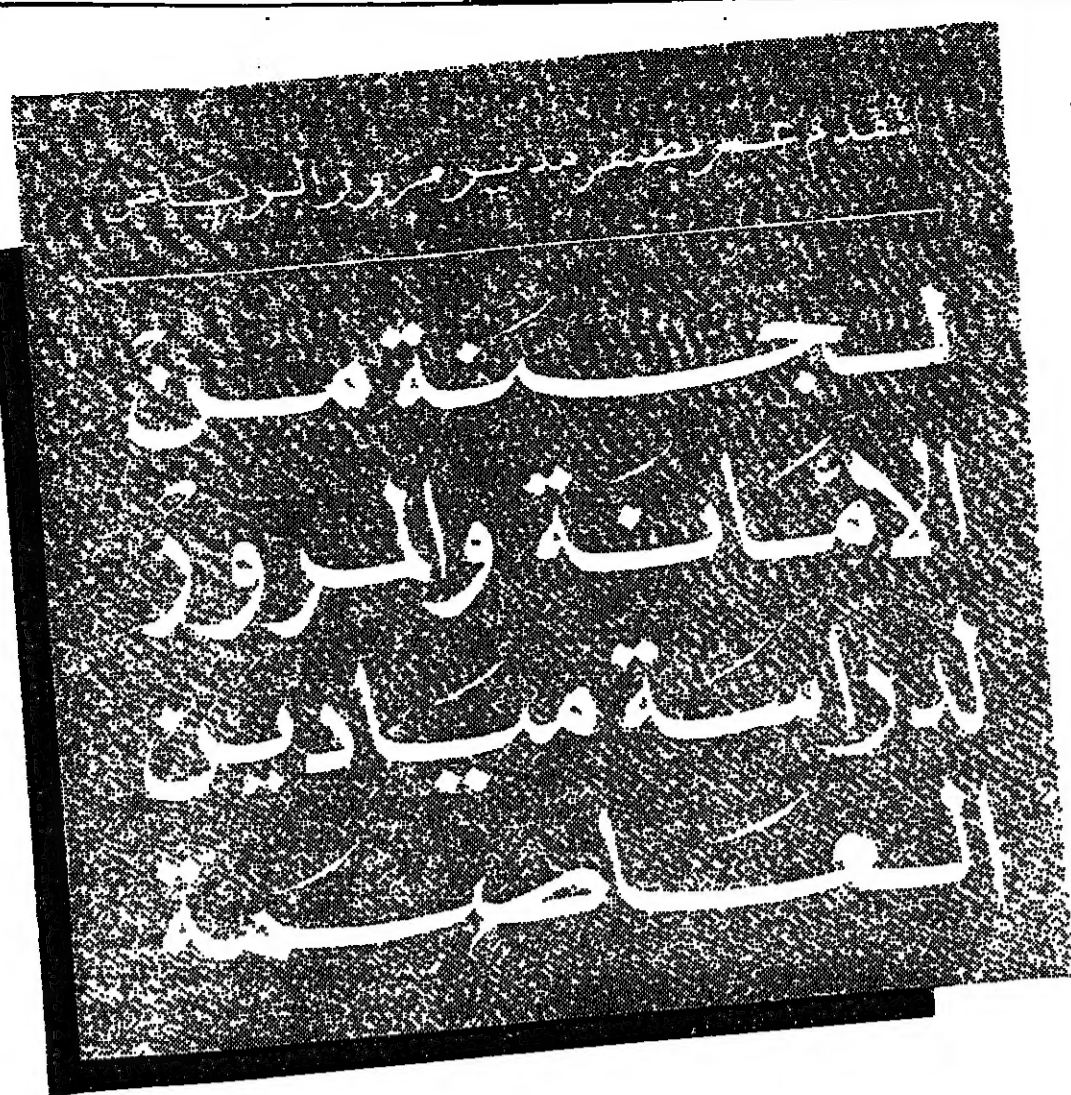 مقدم عمر نصفر مدير مرور الرياض
لجنة من
الأمانة والمرور
لدراسة ميادين
العاصمة